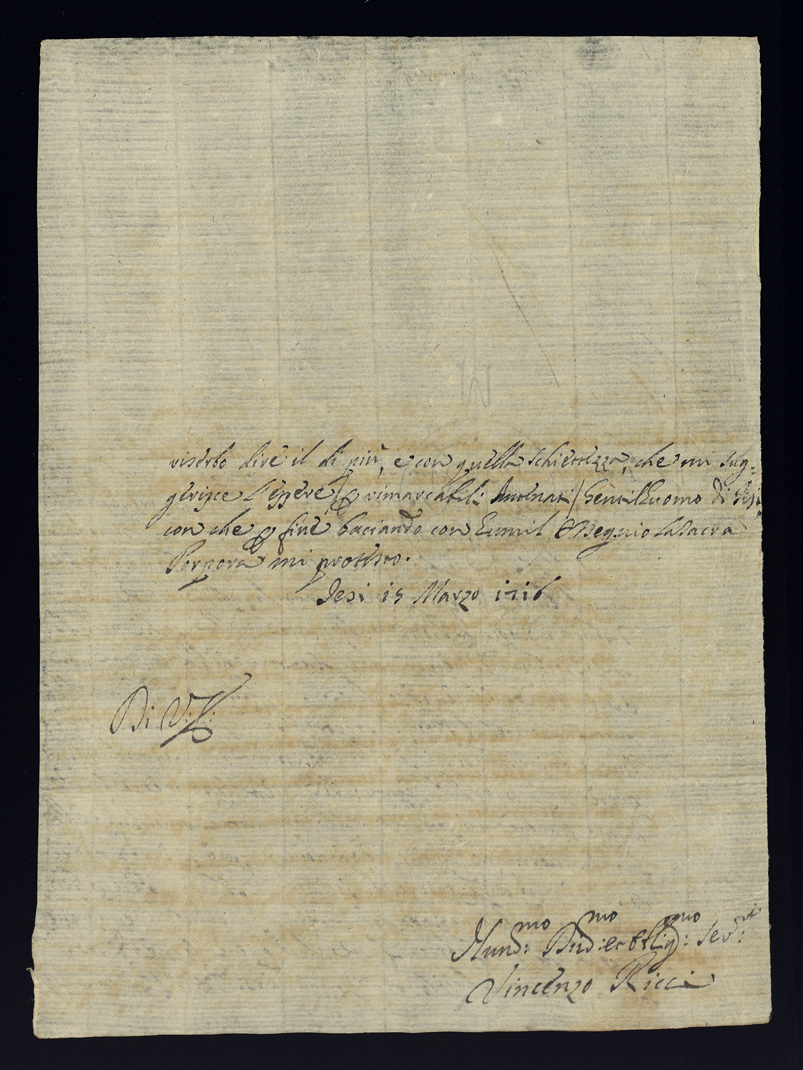 riserbo dire il di più, e con quella schiettezza, che mi sug=
gerisce l'essere / rimarcabili Antenati / Gentilhuomo di Jesi
con che fine baciando con Eumil Ossequio la Sacra
Porpora mi protesto.
Jesi 15 Marzo 1716
Di V:
Hum:mo Div:mo et Oblig:mo Ser:
Vincenzo Ricci